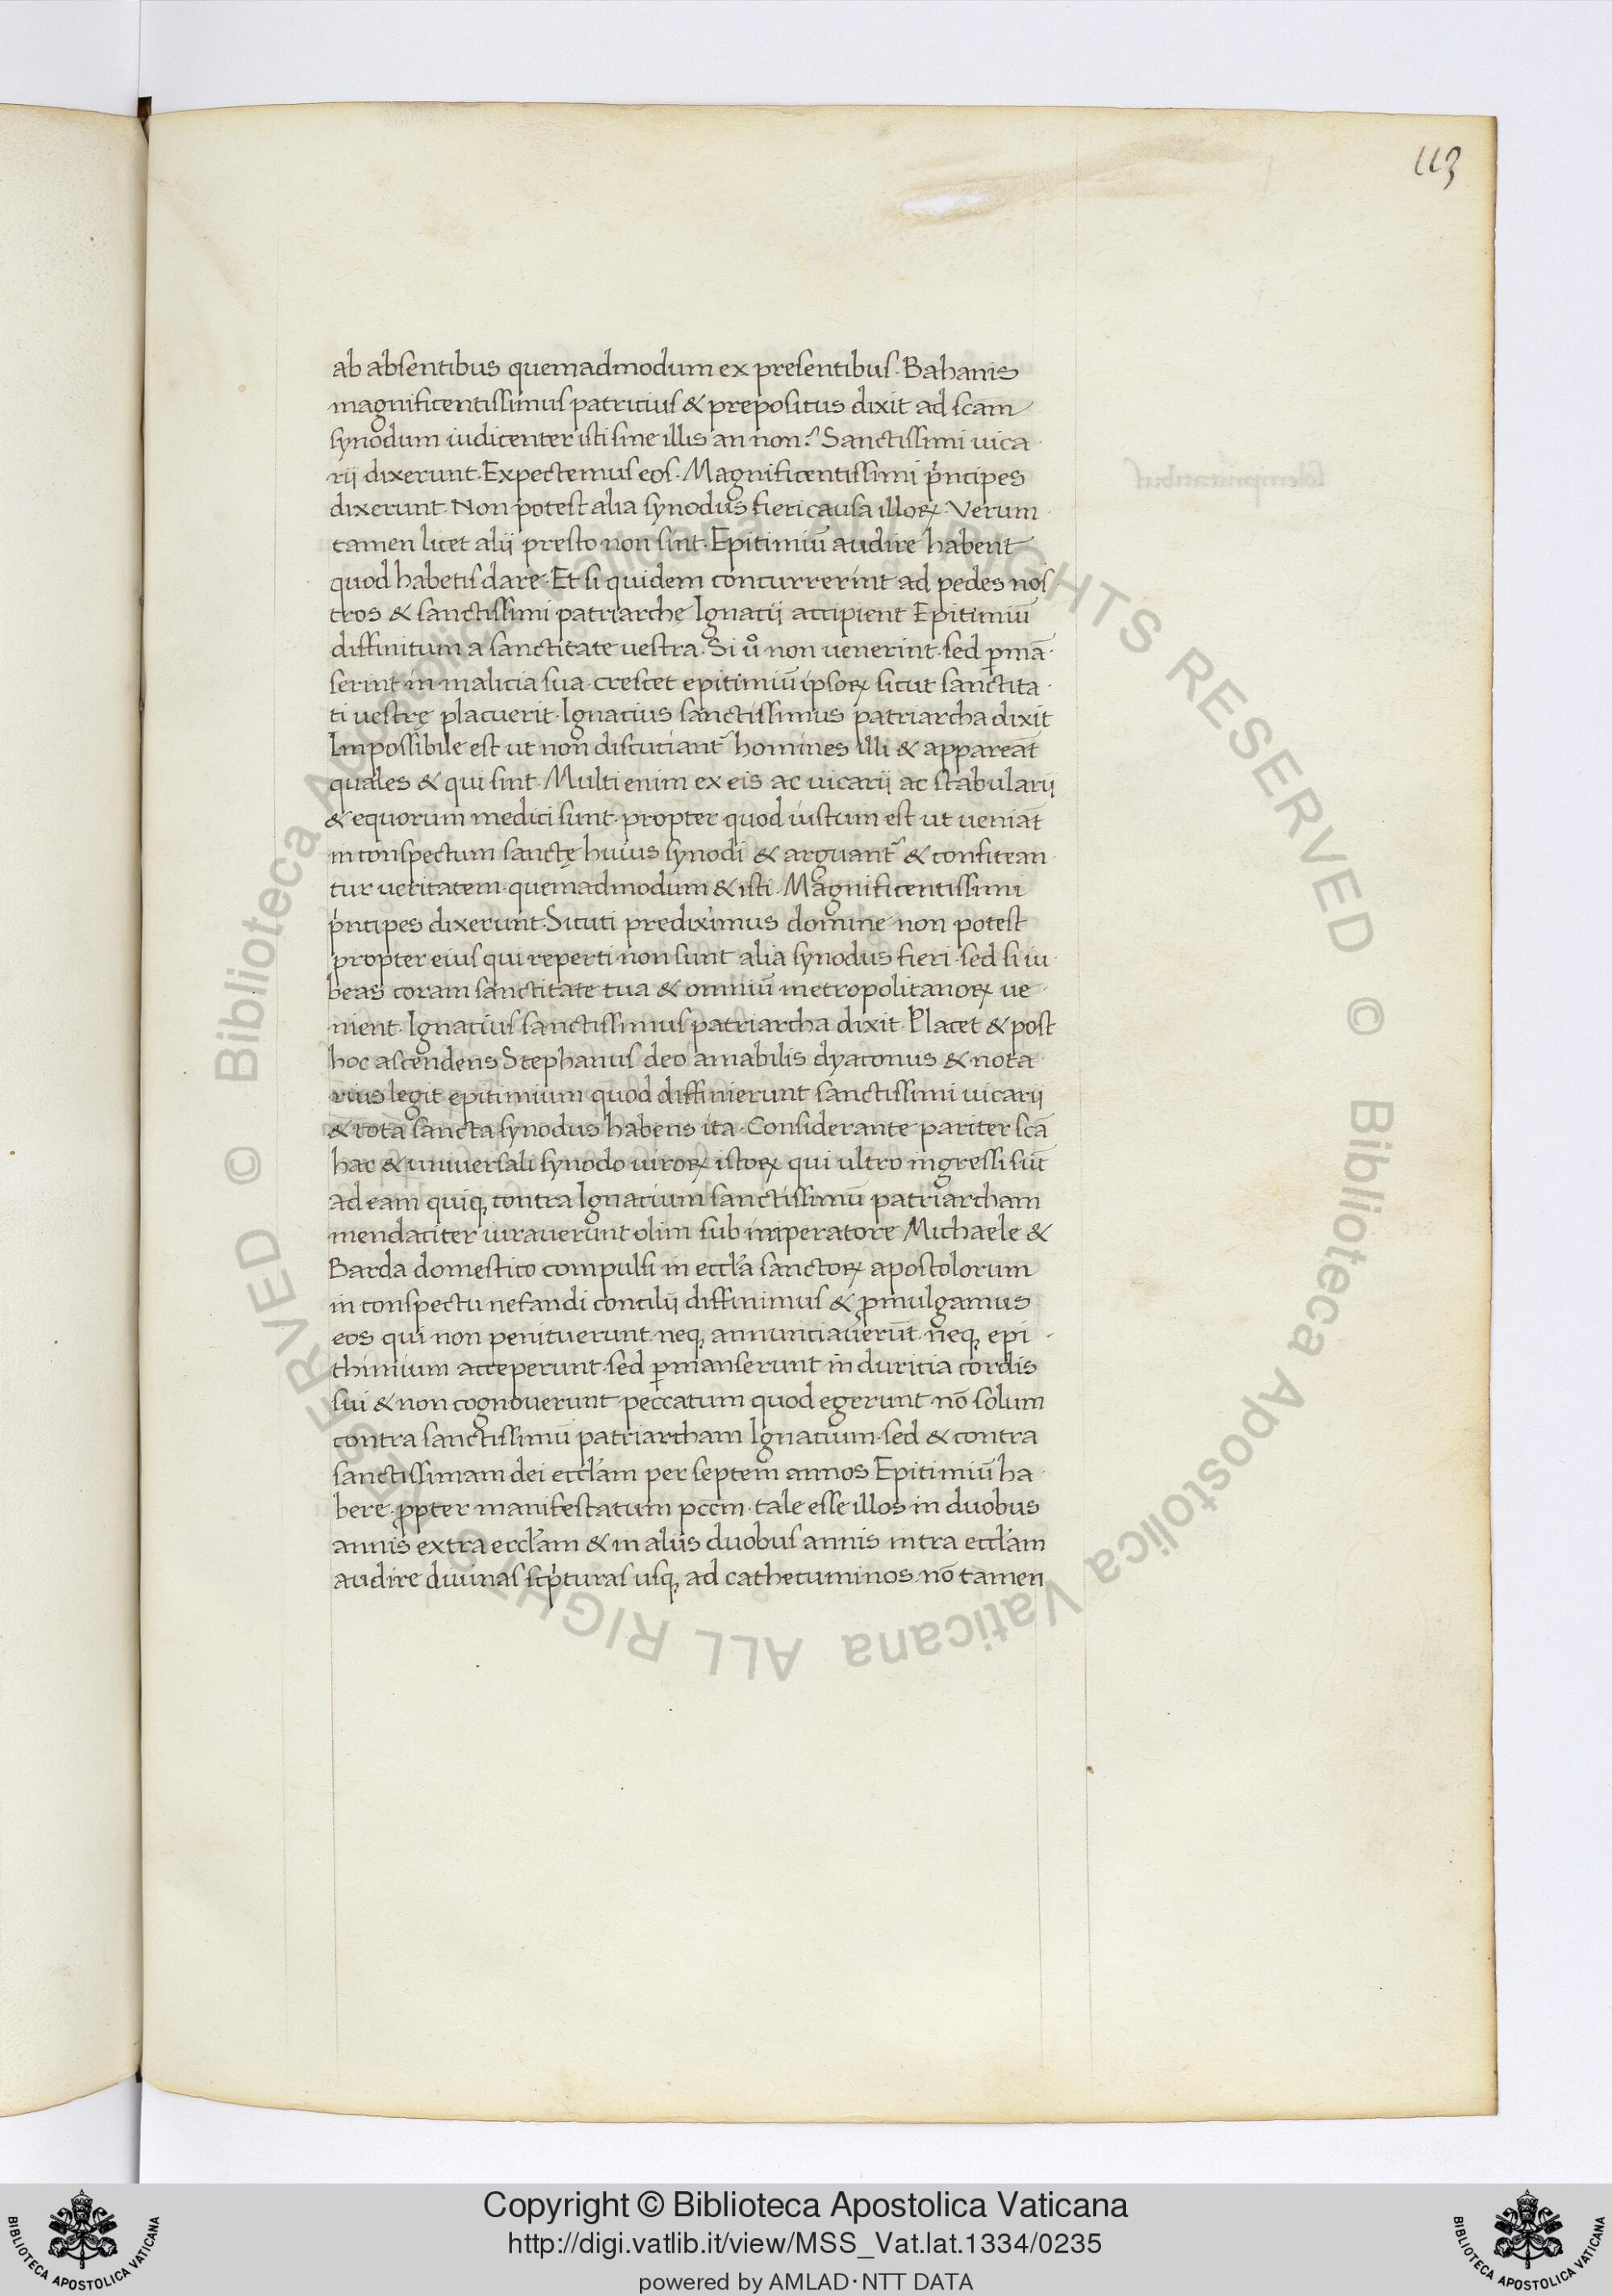 113
ab absentibus quemadmodum ex presentibus. Bahanis
magnificentissimus patricius & prepositus dixit ad scām
synodum iudicenter isti sine illis an non? Sanctissimi uica
rii dixerunt. Expectemus eos. Magnificentissimi pⁱncipes
dixerunt. Non potest alia synodus fieri causa illoꝝ. Verum
tamen licet alii presto non sint. Epitimiū audire habent
quod habetis dare. Et si quidem concurrerint ad pedes nos
tros & sanctissimi patriarchę Ignacii accipient Epitimiū
diffinitum a sanctitate uestra. Si uͦ non uenerint. sed ꝑmā
serint in malicia sua crescet epitimiū ipsoꝝ sicut sanctita
ti uestrę placuerit. Ignacius sanctissimus patriarcha dixit
Impossibile est ut non discuciant᷑ homines illi & appareāt
quales & qui sint. Multi enim ex eis ac uicarii ac stabularii
& equorum medici sunt. propter quod iustum est ut ueniāt
in conspectum sanctę huius synodi & arguant᷑ & confitean
tur ueritatem quemadmodum & isti. Magnificentissimi
pⁱncipes dixerunt. Sicuti prediximus domine non potest
propter eius qui reperti non sunt alia synodus fieri. sed si iu
beas coram sanctitate tua & omniū metropolitanoꝝ ue
nient. Ignacius sanctissimus patriarcha dixit. Placet & post
hoc ascendens Stephanus deo amabilis dyaconus & nota
rius legit epitimium quod diffinierunt sanctissimi uicarii
& tota sancta synodus habens ita. Considerante pariter scā
hac & uniuersali synodo uiroꝝ istoꝝ qui ultro ingressi sūt
ad eam quiqꝫ contra Ignacium sanctissimū patriarcham
mendaciter iurauerunt olim sub imperatore Michaele &
Barda domestico compulsi in eccl'a sanctoꝝ apostolorum
in conspectu nefandi concilii diffinimus & ꝓmulgamus
eos qui non penituerunt neqꝫ annunciauerūt neqꝫ epi
thimium acceperunt. sed ꝑmanserunt in duricia cordis
sui & non cognouerunt peccatum quod egerunt nō solum
contra sanctissimū patriarcham Ignacium. sed & contra
sanctissimam dei eccl'am per septem annos Epitimiū ha
bere ꝓpter manifestatum pccm̄. tale esse illos in duobus
annis extra eccl'am & in aliis duobus annis intra eccl'am
audire diuinas scpⁱturas usqꝫ ad cathecuminos nō tamen
© Biblioteca Apostolica Vaticana ALL RIGHTS RESERVED © Biblioteca Apostolica Vaticana ALL RIGHTS RESERVED
BIBLIOTECA APOSTOLICA VATICANA
Copyright © Biblioteca Apostolica Vaticana
http://digi.vatlib.it/view/MSS_Vat.lat.1334/0235
powered by AMLAD·NTT DATA
BIBLIOTECA APOSTOLICA VATICANA